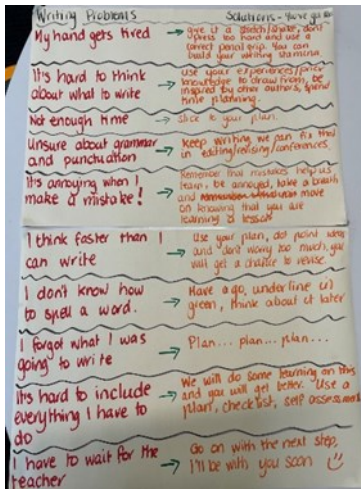 Writing Problems
Solutions - You've got
My hand gets tired
→ give it a stretch/shake, don't
press too hard and use a
correct pencil grip. You can
build your writing stamina.
It's hard to think
about what to write
→ Use your experiences/prior
knowledge to draw from, be
inspired by other authors, spend
time planning.
Not enough time
→ stick to your plan.
Unsure about grammar
and punctuation
→ Keep writing we can fix this
in editing/revising/conferences.
It's annoying when I
make a mistake!
→ Remember that mistakes help us
learn, be annoyed, take a breath
and move
on knowing that you are
learning a lesson
I think faster than I
can write
→ Use your plan, dot point ideas
and don't worry too much, you
will get a chance to revise.
I don't know how
to spell a word.
→ Have a go, underline in
green, think about it later
I forgot what I was
going to write
→ Plan... plan... plan...
It's hard to include
everything I have to
do
→ We will do some learning on this
and you will get better. Use a
plan, checklist, self assessment
I have to wait for the
teacher
→ Go on with the next step,
I'll be with you soon